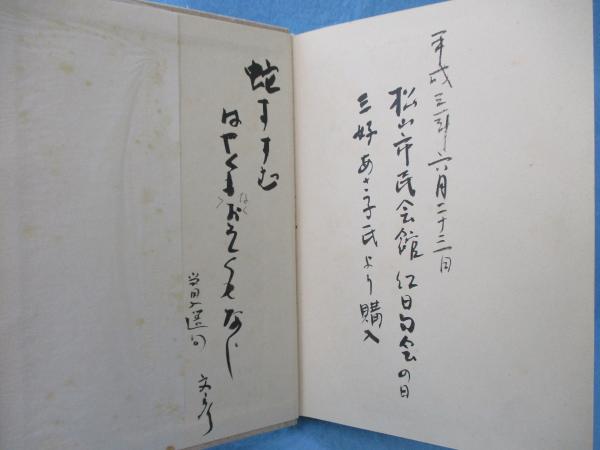 平成三年六月二十三日
松山市民会館 紅日句会の日
三好あさ子氏より購入
蛇すすむ
はやくもおそくもなし
当日入選句